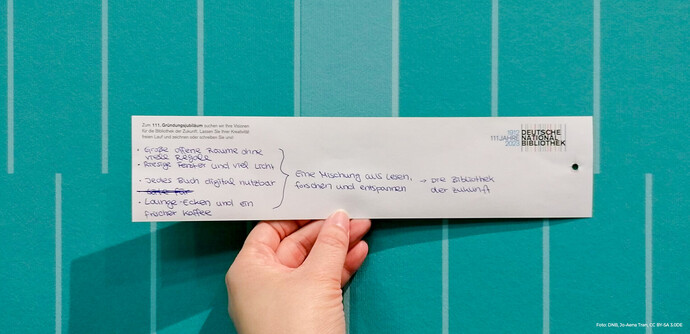 Zum 111. Gründungsjubiläum suchen wir Ihre Visionen
für die Bibliothek der Zukunft. Lassen Sie Ihrer Kreativität
freien Lauf und zeichnen oder schreiben Sie uns!
1912
111 JAHRE
2023
DEUTSCHE
NATIONAL
BIBLIOTHEK
• Große offene Räume ohne
viele Regale
• Riesige Fenster und viel Licht
• Jedes Buch digital nutzbar
• Lounge-Ecken und ein
frischer Kaffee
Eine Mischung aus Lesen,
forschen und entspannen
→ Die Bibliothek
der Zukunft
Foto: DNB, Jo-Anna Tran, CC BY-SA 3.0DE